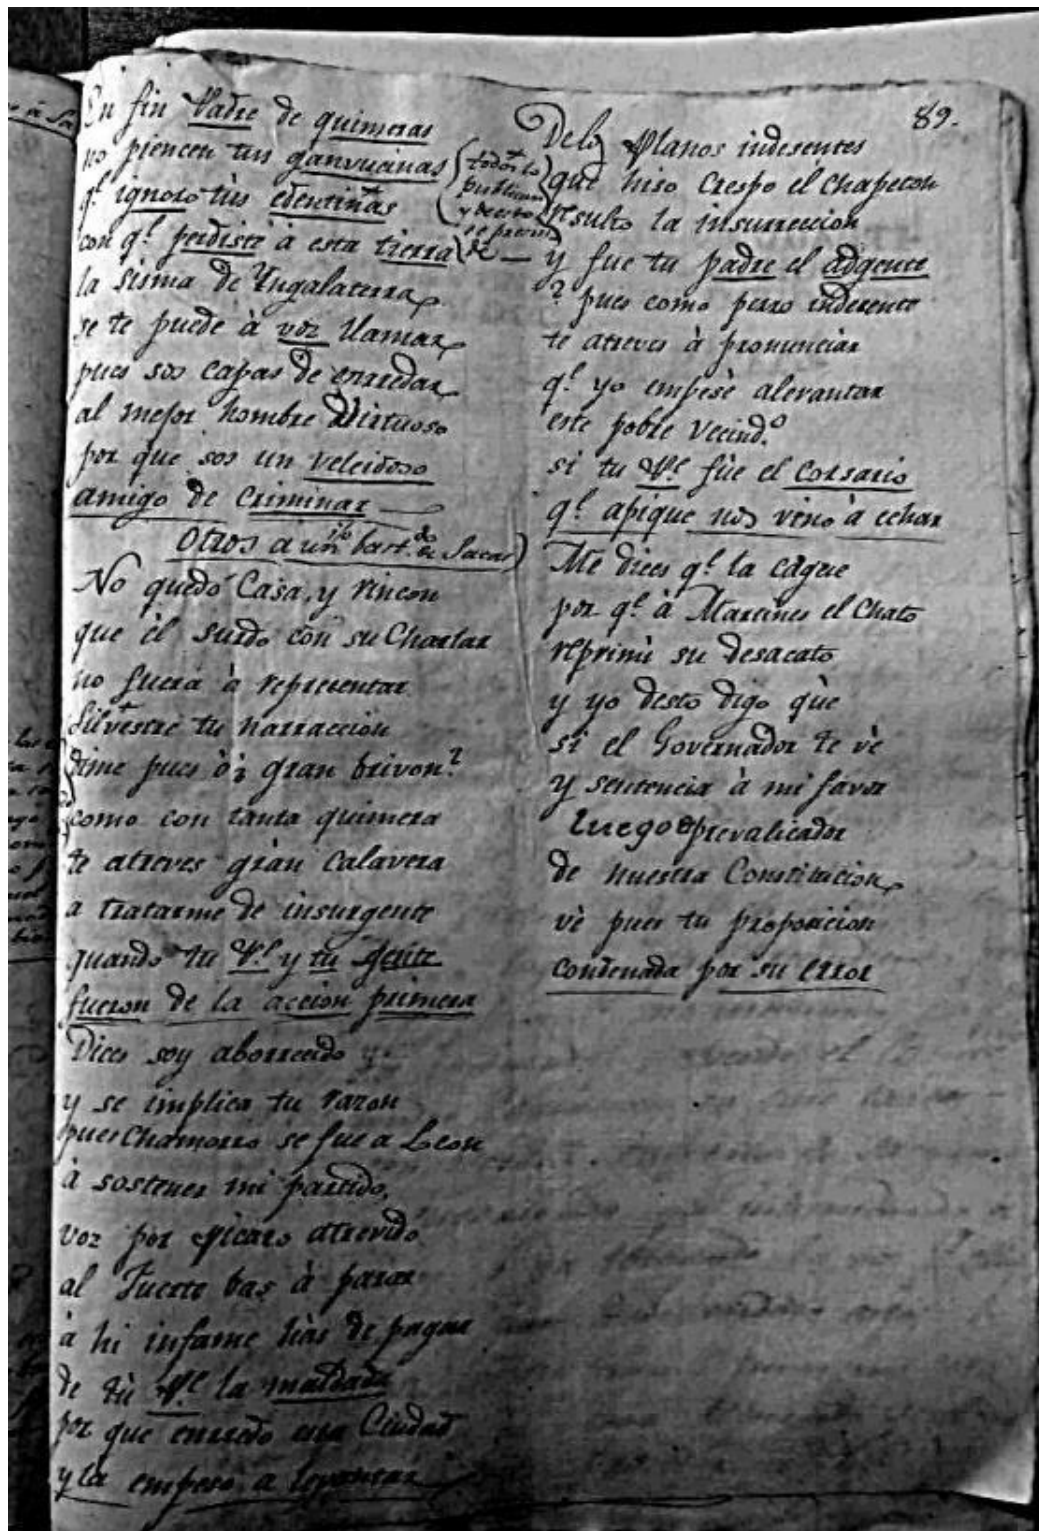 89.
En fin Padre de quimeras
no piencen tus ganvucinas
q.e ignoro tùs
con q.e perdiste à esta tierra
todos lo
publican
y decirlo
se
&
la sisma de Yngalaterra
se te puede à voz llamar
pues sos capas de enrredar
al mejor hombre Virtuoso
por que sos un veleidoso
amigo de criminar
Otros a un hijo bast.do de Sacas
No quedó Casa, y rincon
que èl surdo con su Charlar
no fuera à representar
Silvestre tu narraccion
dime pues ò gran brivon?
como con tanta quimera
te atreves gran calavera
a tratarme de insurgente
quando tu P.e y tu gente
fueron de la accion primera
Dices soy aborrecido
y se implica tu razon
pues Chamorro se fue a Leon
à sostener mi partido,
voz por picaro atrevido
al Fuerte bas à parar
à hi infame hàs de pagar
de tù P.e la maldad
por que enrredo esta Ciudad
y la empesó a levantar
Delos Planos indesentes
que hiso Crespo el chapeton
resulto la insurreccion
y fue tu padre el adgente
? pues como perro indesente
te atreves à pronunciar
q.e yo empesè alevantar
este pobre Vecind.o
si tu P.e fùe el corsario
q.e apique nos vino à echar
Me dices q.e la cague
por q.e à Martines el Chato
reprimì su desacato
y yo desto digo què
si el Governador te vè
y sentencia à mi favor
Luego prevalicador
de nuestra Constitucion
vè pues tu proposicion
condenada por su error